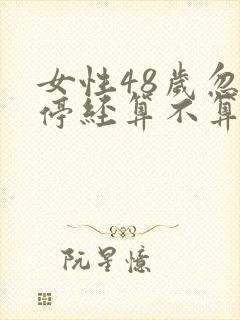 女性48歲忽
停経算不算
阮星憶